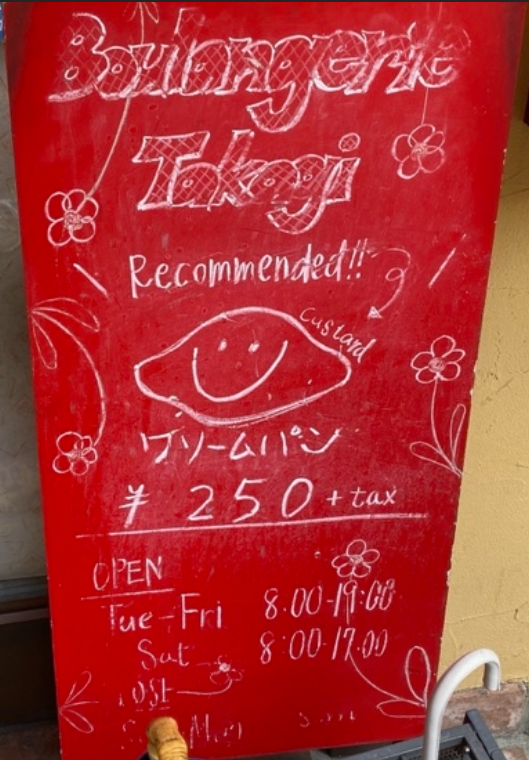 Boulangerie
Takagi
Recommended!!
custard
クリームパン
¥ 250 + tax
OPEN
Tue-Fri 8:00-19:00
Sat 8:00-17:00
Mon